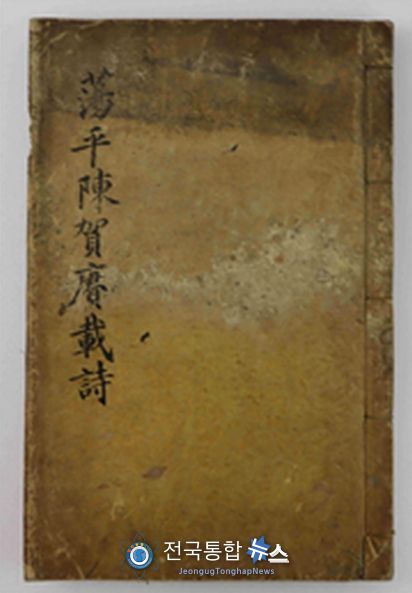 蕩平陳賀賡載詩
전국통합뉴스
JeongugTonghapNews